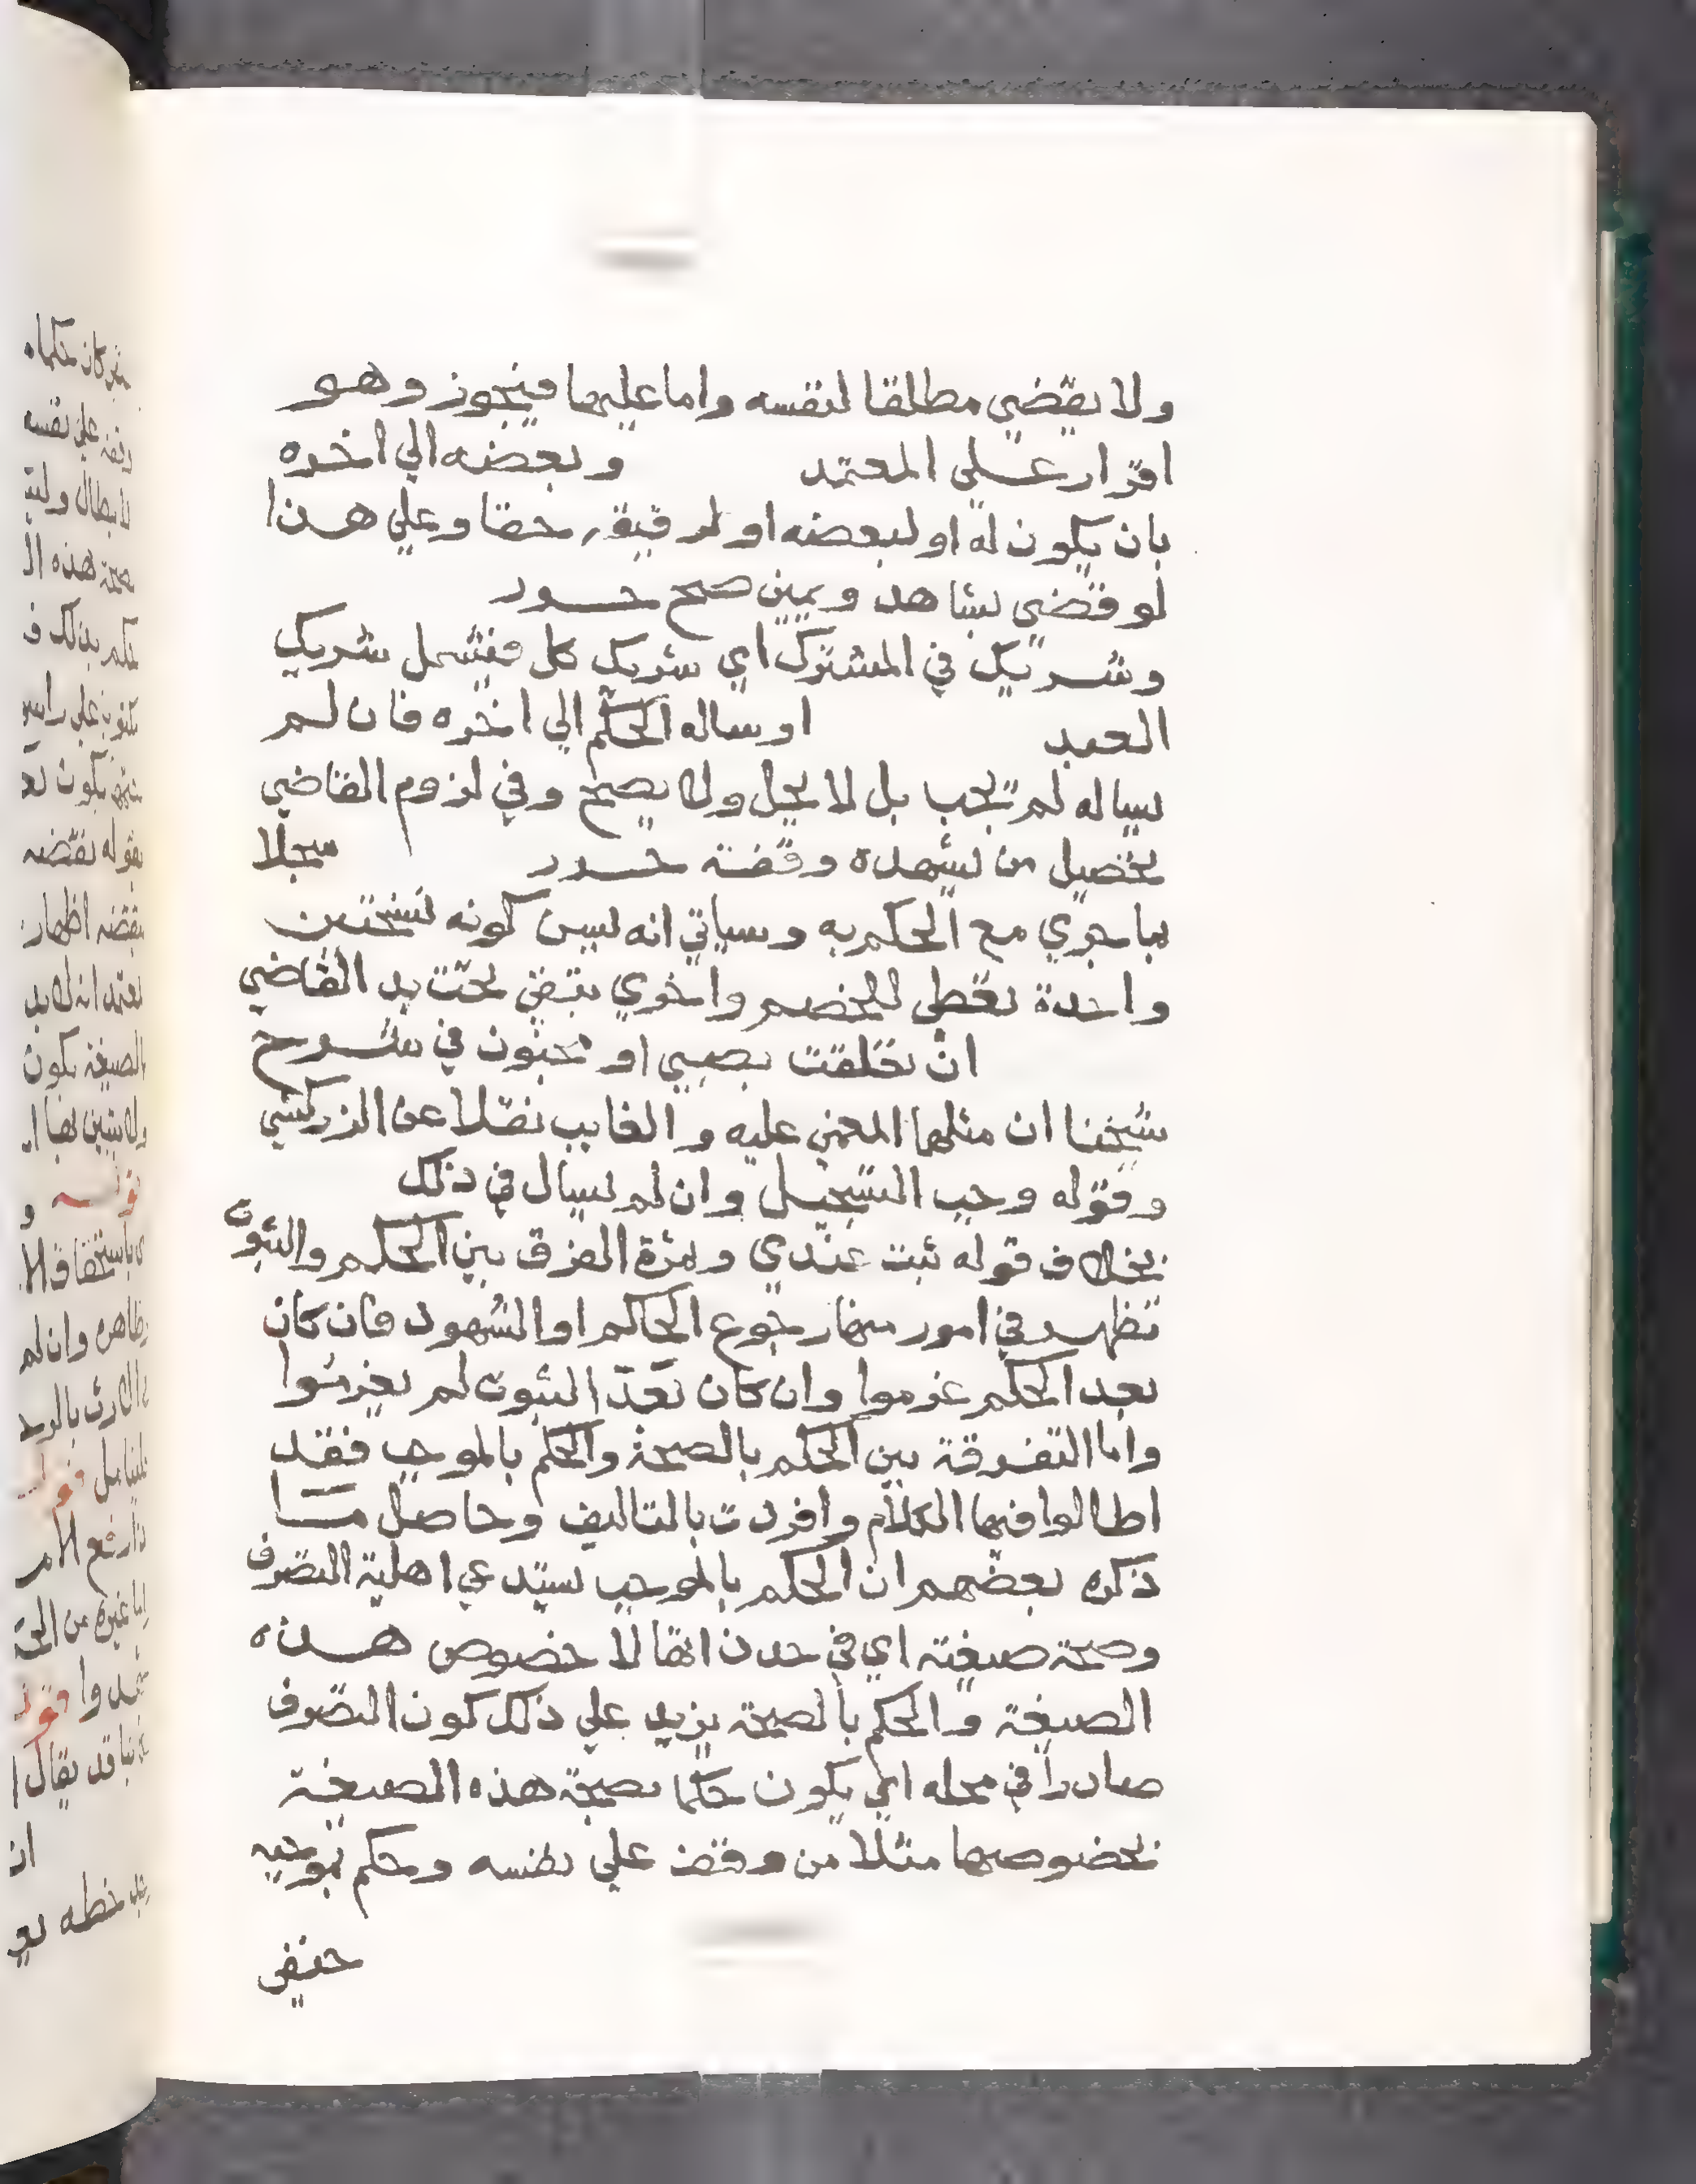 ولا يقضي مطلقا لنفسه واما عليها فيجوز وهو
اقرار علي المعتمد وبعضه الي اخره
بان يكون له او لبعضه او لرقيقه حقا وعلي هذا
لو قضي بشاهد ويمين صح حرر
وشريك في المشترك اي شريك كل فيشمل شريك
العبد او ساله الحكم الي اخره فان لم
يساله لم يجب بل لا يحل ولا يصح وفي لزوم القاضي
تحصيل من يشهده وقفة حرر سجلا
بما جري مع الحكم به وسياتي انه يسن كونه نسختين
واحدة تعطي للخصم واخري تبقي تحت يد القاضي
ان تعلقت بصبي او مجنون في شرح
شيخنا ان مثلهما المغمي عليه والغايب نقلا عن الزركشي
وقوله وجب التسجيل وان لم يسال في ذلك
بخلاف قوله ثبت عندي وثمرة الفرق بين الحكم والثبوت
تظهر في امور منها رجوع الحاكم او الشهود فان كان
بعد الحكم غرموا وان كان بعد الثبوت لم يغرموا
واما التفرقة بين الحكم بالصحة والحكم بالموجب فقد
اطالوا فيها الكلام وافردت بالتاليف وحاصل ما
ذكره بعضهم ان الحكم بالموجب يستدعي اهلية التصرف
وصحة صيغته اي في حد ذاتها لا خصوص هذه
الصيغة والحكم بالصحة يزيد علي ذلك كون التصرف
صادرا في محله اي يكون حكما بصحة هذه الصيغة
بخصوصها مثلا من وقف علي نفسه وحكم بموجبه
حنفي